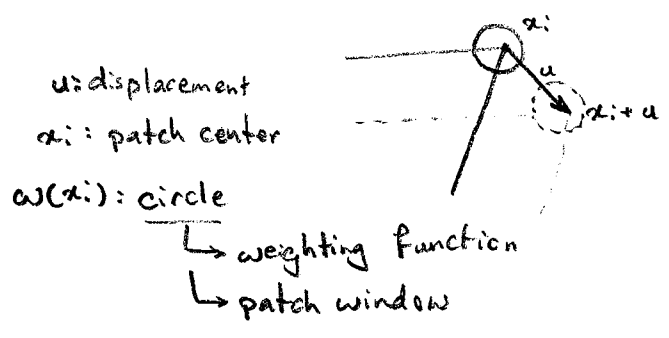 xi
u
xi + u
u: displacement
xi : patch center
ω(xi) : circle
weighting function
patch window